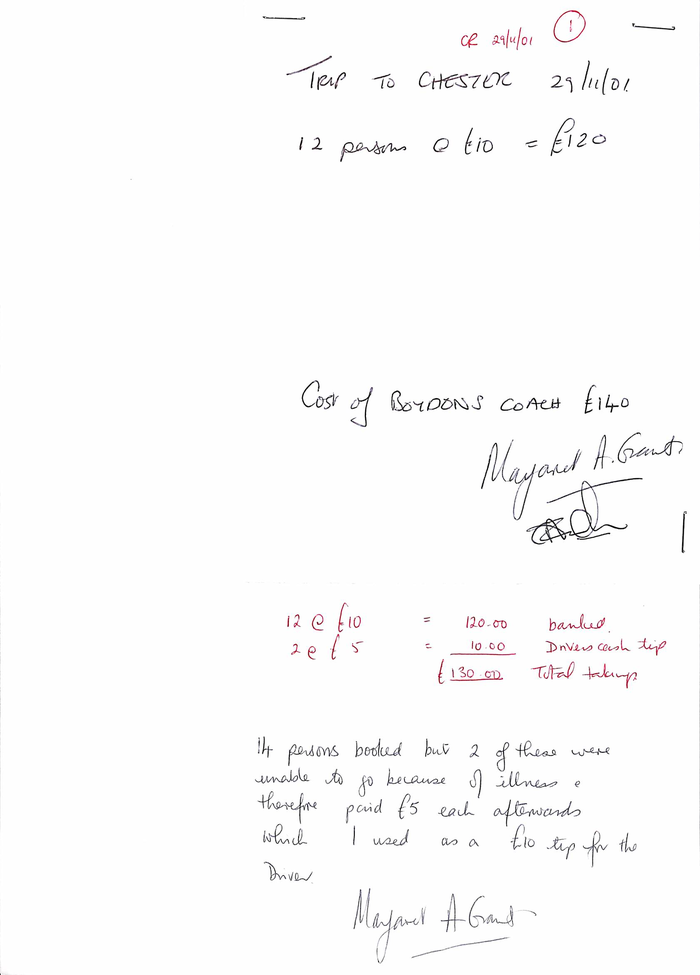 CR 29/11/01 1
TRIP TO CHESTER 29/11/01
12 persons @ £10 = £120
Cost of BOYDONS COACH £140
Margaret A. Grant
12 @ £10 = 120.00 banked
2 @ £5 = 10.00 Drivers cash tip
£130.00 Total takings
14 persons booked but 2 of these were
unable to go because of illness &
therefore paid £5 each afterwards
which I used as a £10 tip for the
Driver.
Margaret A Grant